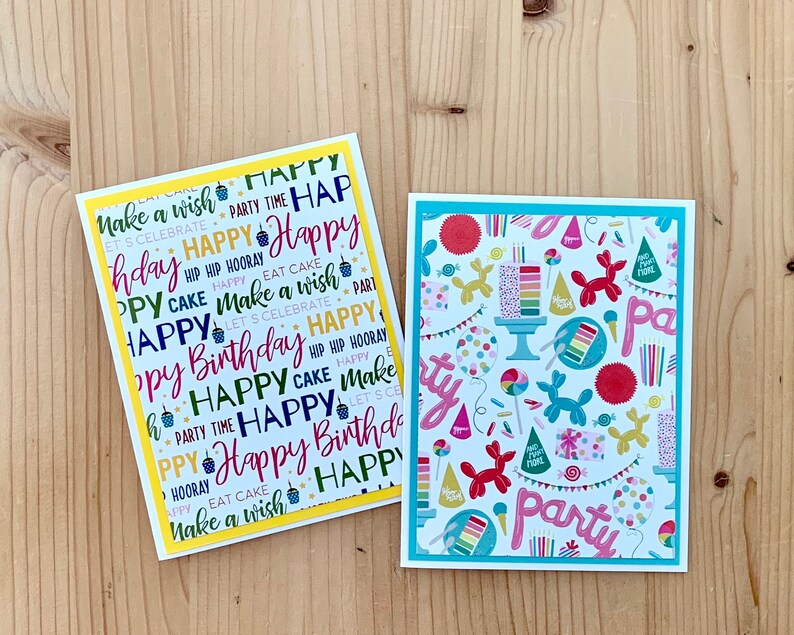 HAPPY
EAT CAKE HAP
Make a wish PARTY TIME
LET'S CELEBRATE HAPPY Happy
rthday HIP HIP HOORAY EAT CAKE
APPY CAKE Make a wish PARTY
HAPPY LET'S CELEBRATE HAPPY
ppy Birthday HIP HIP HOORAY
HAPPY
HAPPY CAKE Make a
PARTY TIME HAPPY
HAPPY Happy Birthday
HOORAY EAT CAKE HAPPY
Make a wish
AND
MANY
MORE
party
party
AND
MANY
MORE
party